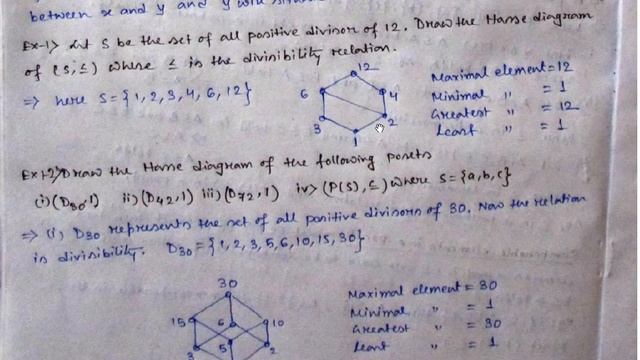 between x and y and y will
Ex-1> Let S be the set of all positive divisor of 12. Draw the Hasse diagram
of (S, ≤) where ≤ is the divisibility relation.
⇒ here S = {1, 2, 3, 4, 6, 12}
12
6
4
3
2
1
Maximal element = 12
Minimal " = 1
Greatest " = 12
Least " = 1
Ex-2> Draw the Hasse diagram of the following posets
(i) (D30, 1) ii) (D42, 1) iii) (D72, 1) iv> (P(S), ⊆) where S = {a, b, c}
⇒ (i) D30 represents the set of all positive divisors of 30. Now the relation
is divisibility. D30 = {1, 2, 3, 5, 6, 10, 15, 30}
30
15
6
10
3
5
2
Maximal element = 30
Minimal " = 1
Greatest " = 30
Least " = 1